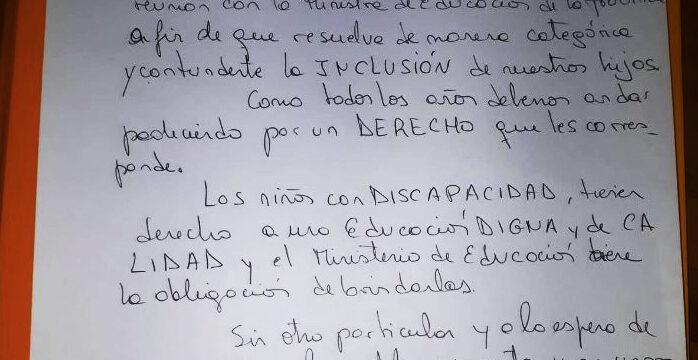 reunion con la Ministra de Educación de la
a fin de que resuelva de manera categórica
y contundente la INCLUSIÓN de nuestros hijos
Como todos los años debemos andar
por un DERECHO que les corres-
ponde.
Los niños con DISCAPACIDAD, tienen
derecho a una Educación DIGNA y de CA
LIDAD y el Ministerio de Educación tiene
la obligación de brindarlas.
Sin otro particular y a la espera de